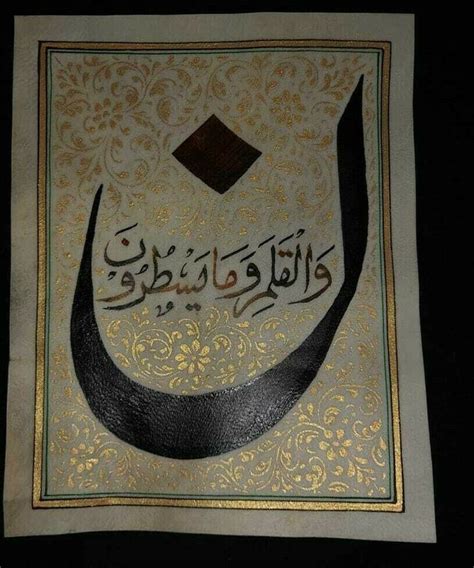 ن
وَالْقَلَمِ وَمَا يَسْطُرُونَ